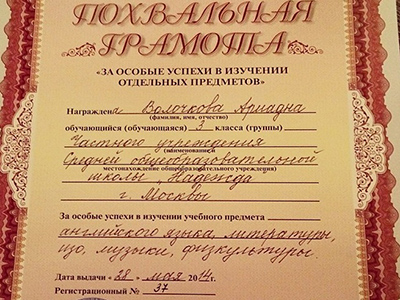 ПОХВАЛЬНАЯ
ГРАМОТА
«ЗА ОСОБЫЕ УСПЕХИ В ИЗУЧЕНИИ
ОТДЕЛЬНЫХ ПРЕДМЕТОВ»
Награждена Волочкова Ариадна
(фамилия, имя, отчество)
обучающийся (обучающаяся) 3 класса (группы)
Частного учреждения
(наименование и
Средней общеобразовательной
местонахождение общеобразовательного учреждения)
школы „Надежда"
г. Москвы
За особые успехи в изучении учебного предмета
английского языка, литературы,
изо, музыки, физкультуры.
Дата выдачи «28» мая 2014г.
Регистрационный № 37